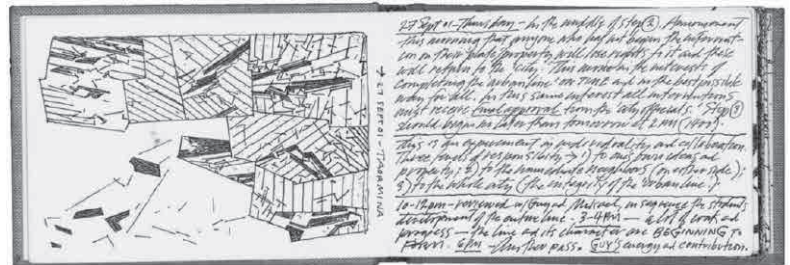 → 27 SEPT 01 – TAORMINA
27 Sept 01 – Thursday – In the middle of step ②. Announcement
this morning that anyone who has not begun the informat-
ion on their plate/property will lose rights to it and these
will return to the "city". This move in the interests of
completing the urban line "ON TIME" and in the best possible
way for all. In this same interest all interventions
must receive final approval from the city officials. Step ③
should begin no later than tomorrow at 2 PM (1400).
This is an experiment in individuality and collaboration.
Three kinds of responsibility → 1) to ones own ideas and
property; 2) to the immediate neighbors (on either side);
3) to the whole city (the integrity of the urban line).
10-12pm – reviewed w/Guy and, in sequence the students
development of the entire line. 3-4PM — a lot of work and
progress — the line and its character are BEGINNING TO
FORM. 6PM – further pass. GUY'S energy and contribution.